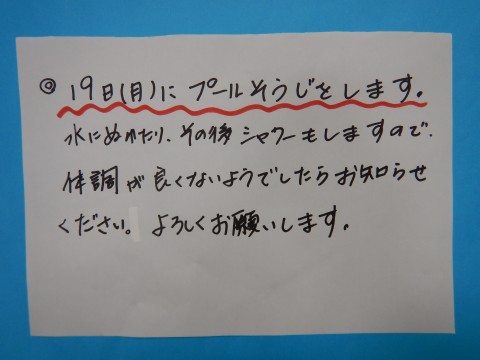 ◎ 19日(月)に プールそうじをします。
水にぬれたり、その後シャワーもしますので、
体調が良くないようでしたらお知らせ
ください。よろしくお願いします。